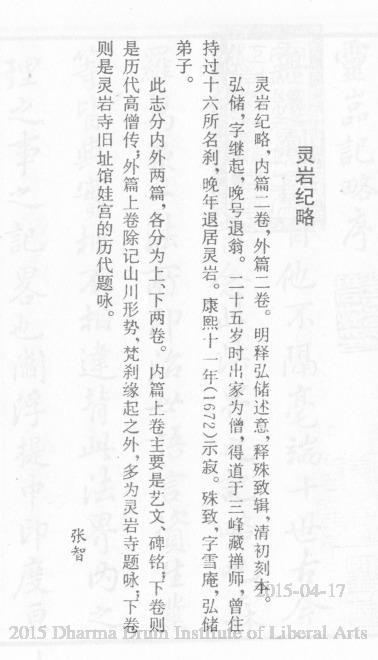 灵岩纪略
灵岩纪略,内篇二卷,外篇二卷。明释弘储述意,释殊致辑,清初刻本。
弘储,字继起,晚号退翁。二十五岁时出家为僧,得道于三峰藏禅师,曾住
持过十六所名刹,晚年退居灵岩。康熙十一年(1672)示寂。殊致,字雪庵,弘储
弟子。
此志分内外两篇,各分为上、下两卷。内篇上卷主要是艺文、碑铭;下卷则
是历代高僧传;外篇上卷除记山川形势,梵刹缘起之外,多为灵岩寺题咏;下卷
则是灵岩寺旧址馆娃宫的历代题咏。
张智
2015-04-17
2015 Dharma Drum Institute of Liberal Arts